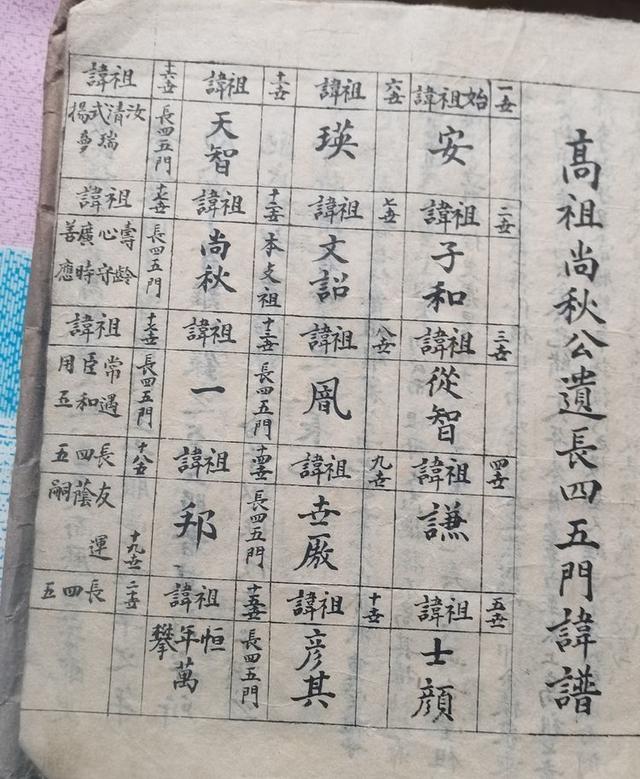 高祖尚秋公遺長四五門諱譜
一世
始祖諱
安
二世
祖諱
子和
三世
祖諱
從智
四世
祖諱
謙
五世
祖諱
士顔
六世
祖諱
瑛
七世
祖諱
文詔
八世
祖諱
九世
祖諱
世厫
十世
祖諱
彦其
十一世
祖諱
天智
十二世
本支祖
祖諱
尚秋
十三世
長四五門
祖諱
一
十四世
長四五門
祖諱
邦
十五世
長四五門
祖諱
恒
年萬
攀
十六世
長四五門
祖諱
汝
清瑞
式
揚
長四五門
祖諱
壽齡
心守
廣時
善應
長四五門
祖諱
常遇
臣和
用五
十八世
長四五
友
蔭
嗣
十九世
運
二十世
長四五